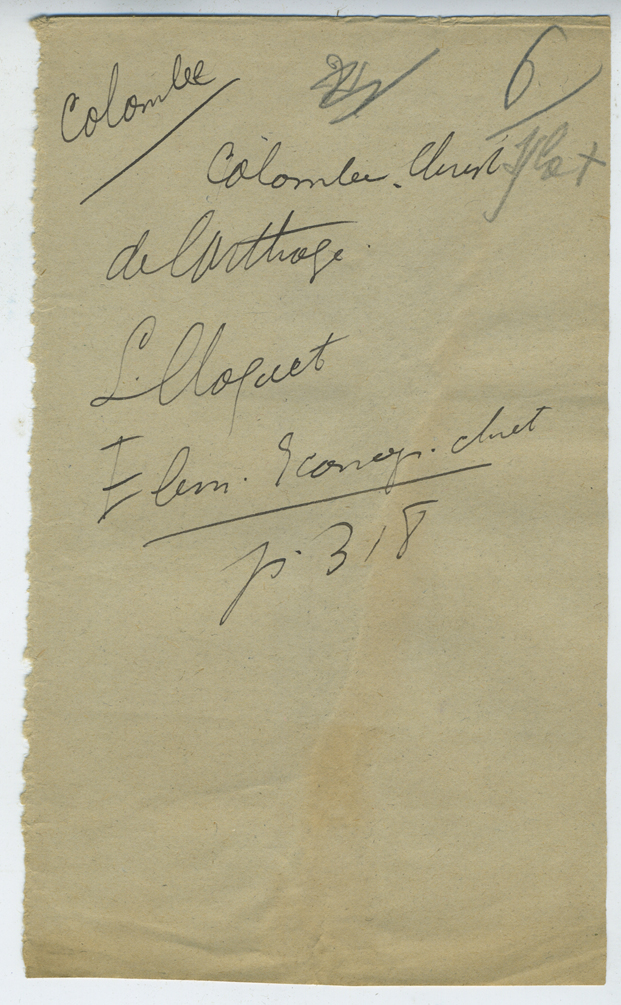 Colombe
6
Colombe. Christ
de Carthage.
L. Cloquet
Elem. Iconogr. chret
p. 318